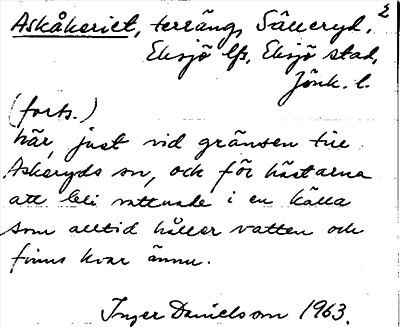 Askåkeriet, terräng, Säneryd, 2
Eksjö lfs, Eksjö stad,
Jönk. l.
(forts.)
här, just vid gränsen till
Askeryds sn, och för hästarna
att bli vattnade i en källa
som alltid håller vatten och
finns kvar ännu.
Inger Danielsson 1963.